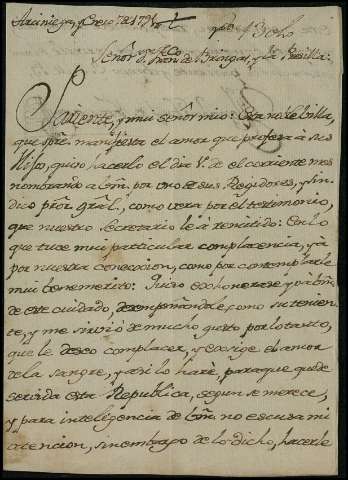 Arciniega, y Enero 7 de 1791
Señor Dn. Juan de Brangas, y la Revilla:
Pariente, y mui señor mio: Esta noble villa,
que spre. manifiesta el amor que profesa à sus
Hijos, quiso hacerlo el dia 1º. de el corriente mes
nombrando a Vm. por uno de sus Regidores, y Sin-
dico Prôr. Gral., como vera por el testimonio,
que nuestro Secretario le à remitido: En lo
que tuve mui particular complacencia, yà
por nuestra coneccion, como por contemplarle
mui benemerito: Quiso exhonerarse
de este cuidado, desempeñandole, como su tenien-
te, y me sirvio de mucho gusto por lo tanto,
que le deseo complacer, y exsige el amor
de la sangre, y asi lo harè, para que quede
servida esta Republica, segun se merece,
y para inteligencia de Vm. no escusa mi
atencion, sin embargo de lo dicho, hacerle